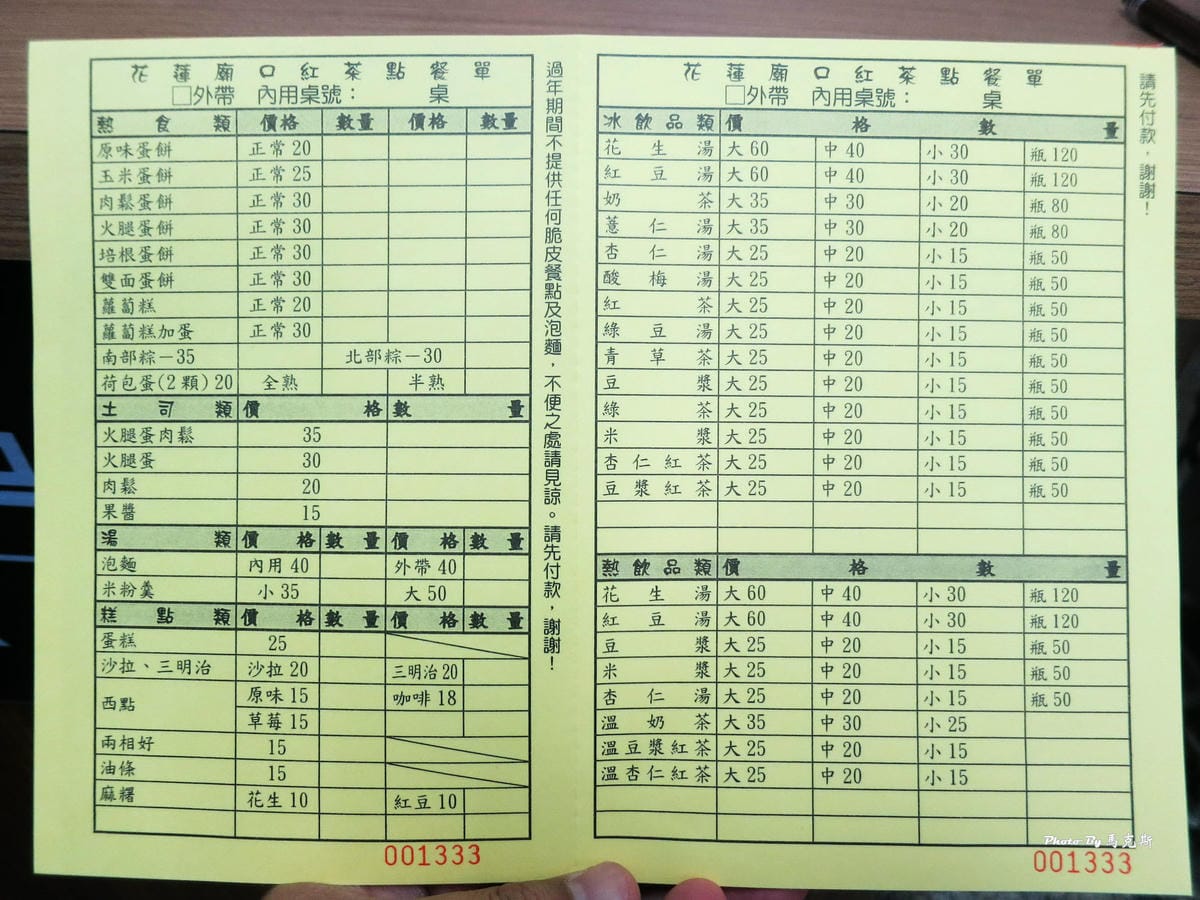 花蓮廟口紅茶點餐單
□外帶 內用桌號： 桌
熱食類 價格 數量 價格 數量
原味蛋餅 正常 20
玉米蛋餅 正常 25
肉鬆蛋餅 正常 30
火腿蛋餅 正常 30
培根蛋餅 正常 30
雙面蛋餅 正常 30
蘿蔔糕 正常 20
蘿蔔糕加蛋 正常 30
南部粽－35 北部粽－30
荷包蛋(2顆)20 全熟 半熟
土司類 價格 數量
火腿蛋肉鬆 35
火腿蛋 30
肉鬆 20
果醬 15
湯類 價格 數量 價格 數量
泡麵 內用 40 外帶 40
米粉羹 小 35 大 50
糕點類 價格 數量 價格 數量
蛋糕 25
沙拉、三明治 沙拉 20 三明治 20
西點 原味 15 咖啡 18
草莓 15
兩相好 15
油條 15
麻糬 花生 10 紅豆 10
001333
過年期間不提供任何脆皮餐點及泡麵，不便之處請見諒。請先付款，謝謝！
花蓮廟口紅茶點餐單
□外帶 內用桌號： 桌
冰飲品類 價格 數量
花生湯 大 60 中 40 小 30 瓶 120
紅豆湯 大 60 中 40 小 30 瓶 120
奶茶 大 35 中 30 小 20 瓶 80
薏仁湯 大 35 中 30 小 20 瓶 80
杏仁湯 大 25 中 20 小 15 瓶 50
酸梅湯 大 25 中 20 小 15 瓶 50
紅茶 大 25 中 20 小 15 瓶 50
綠豆湯 大 25 中 20 小 15 瓶 50
青草茶 大 25 中 20 小 15 瓶 50
豆漿 大 25 中 20 小 15 瓶 50
綠茶 大 25 中 20 小 15 瓶 50
米漿 大 25 中 20 小 15 瓶 50
杏仁紅茶 大 25 中 20 小 15 瓶 50
豆漿紅茶 大 25 中 20 小 15 瓶 50
熱飲品類 價格 數量
花生湯 大 60 中 40 小 30 瓶 120
紅豆湯 大 60 中 40 小 30 瓶 120
豆漿 大 25 中 20 小 15 瓶 50
米漿 大 25 中 20 小 15 瓶 50
杏仁湯 大 25 中 20 小 15 瓶 50
溫奶茶 大 35 中 30 小 25
溫豆漿紅茶 大 25 中 20 小 15
溫杏仁紅茶 大 25 中 20 小 15
001333
請先付款，謝謝！
Photo By 馬克斯